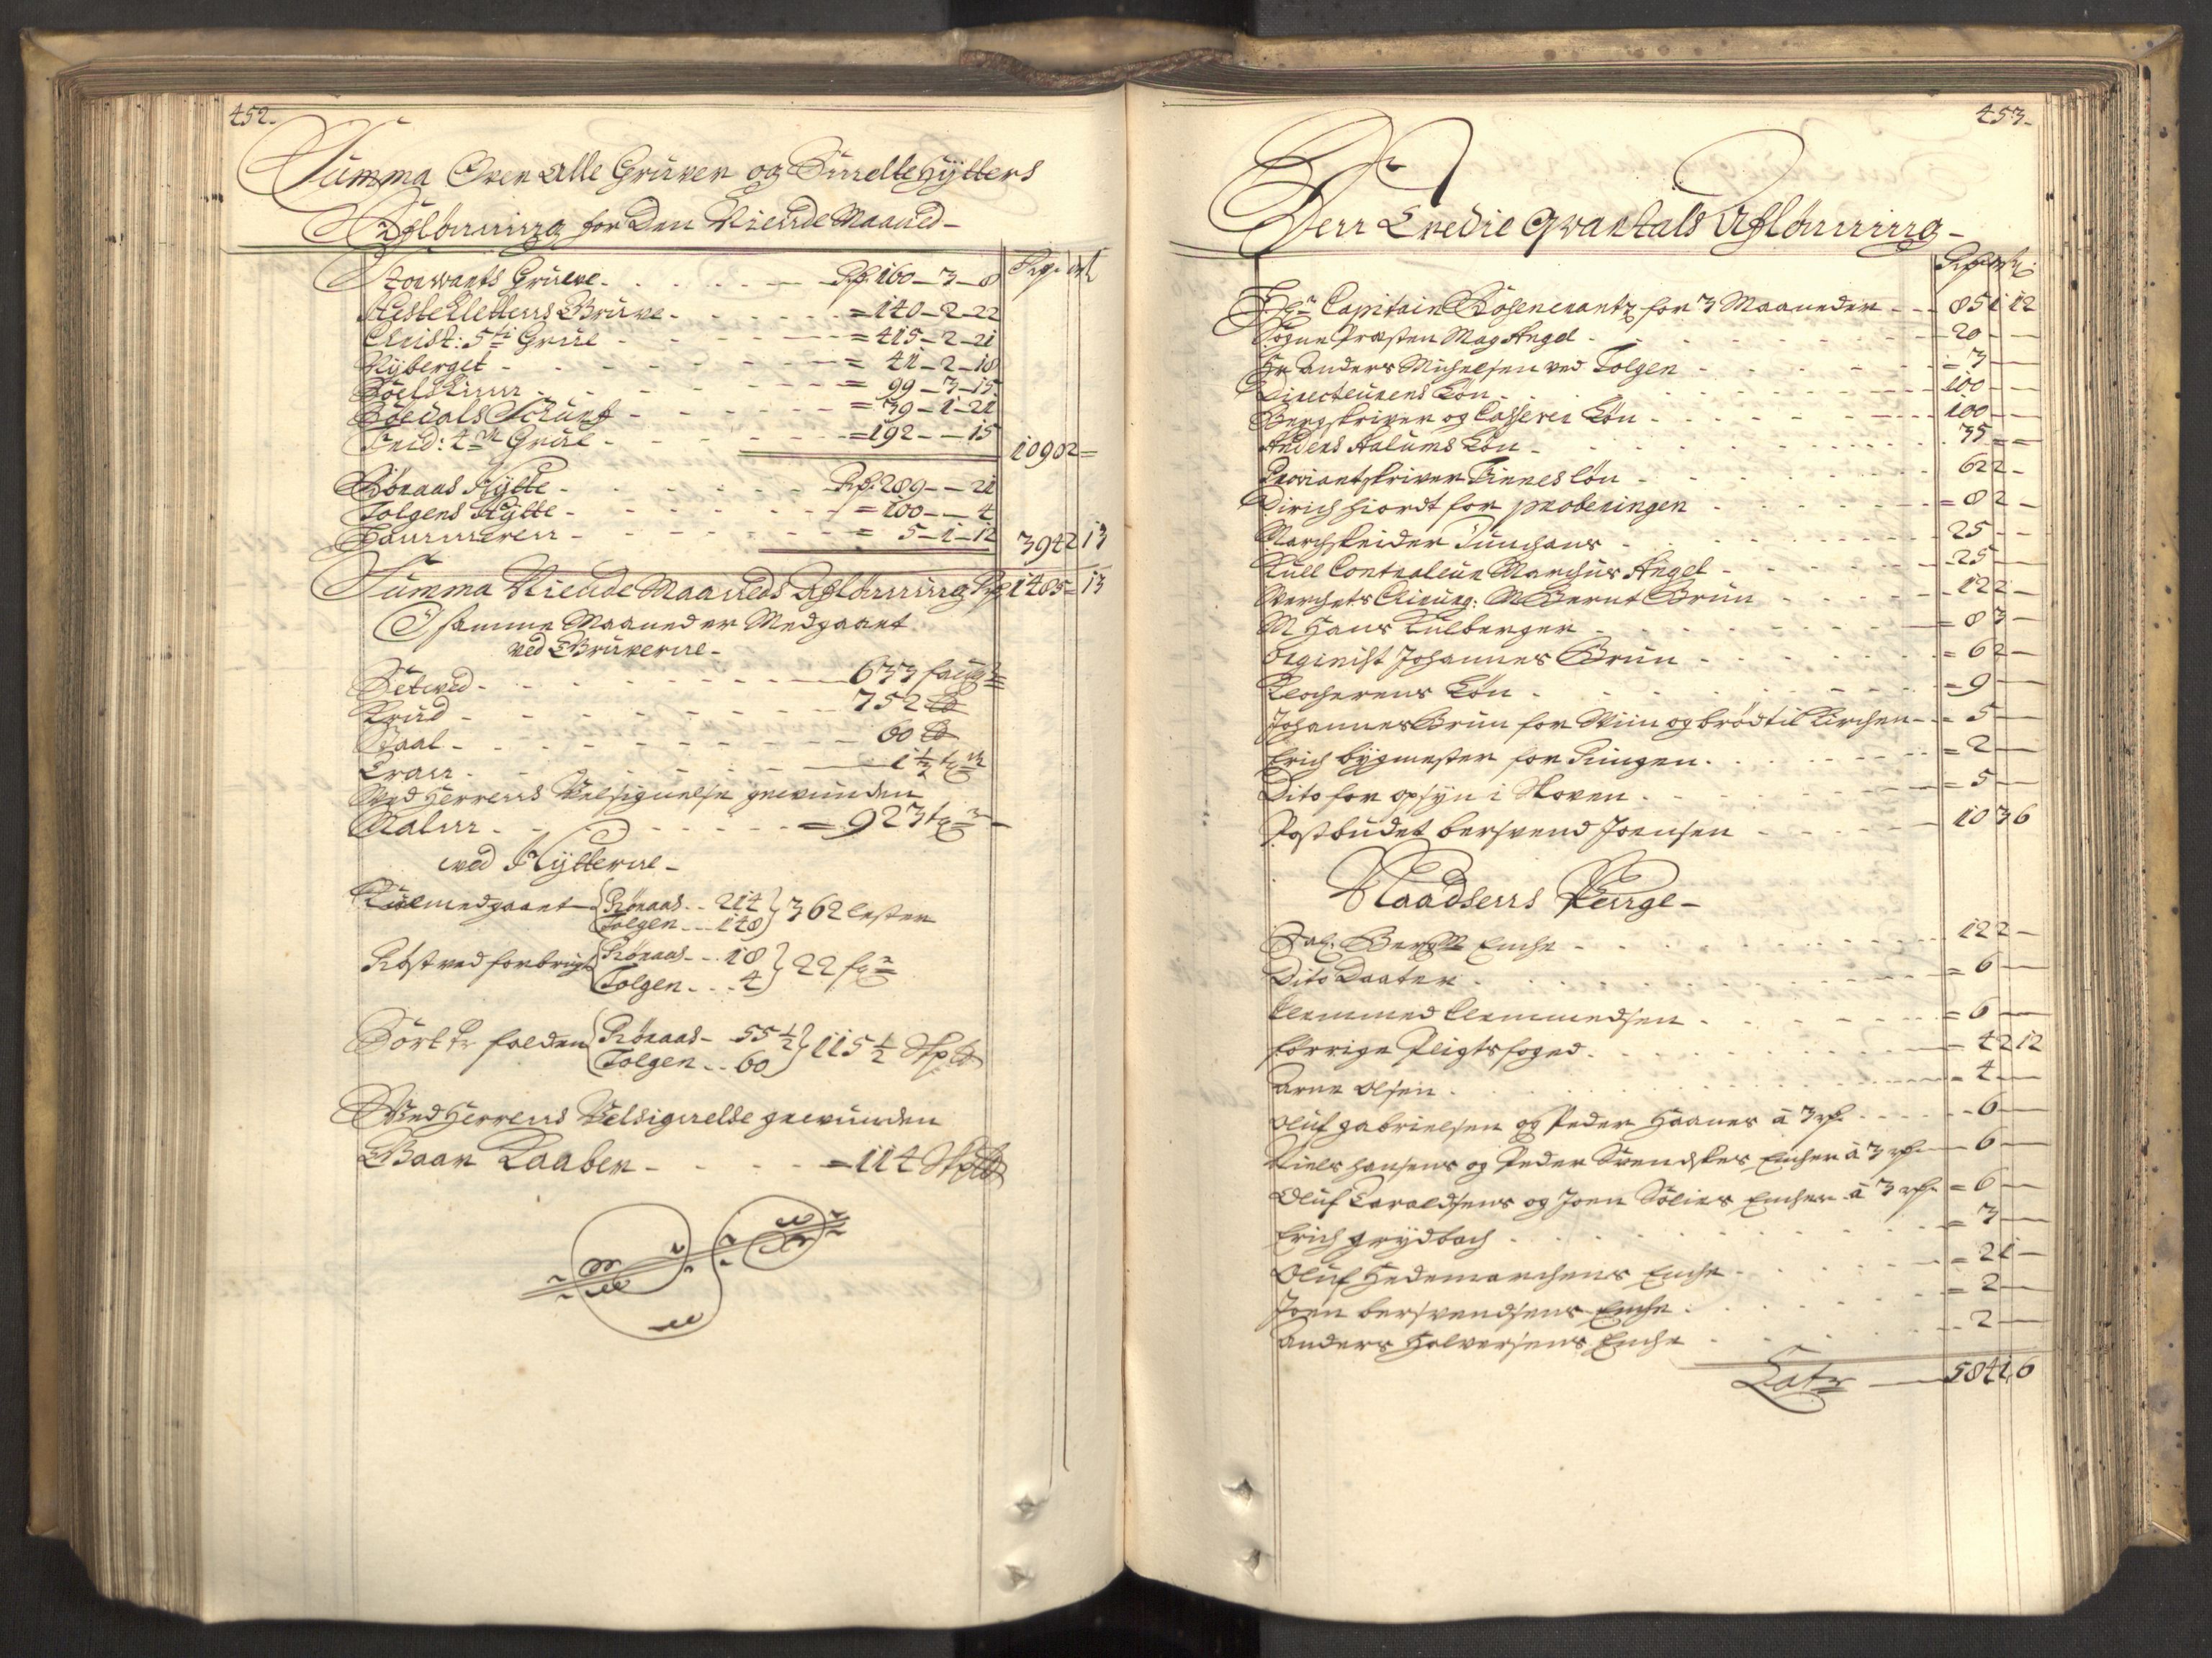 452.
Summa Over Alle Gruver og Smelte Hytters
Aflønning for Den Niende Maaned
Rdr ort
Storvarts Grueve - Rdr 160 - 3 - 8
Hestekletters Gruve - = 140 - 2 - 22
Christ: 5te Grue - = 415 - 2 - 21
Nyberget - = 41 - 2 - 18
- = 99 - 3 - 15
- = 39 - 1 - 21
Frid: 4de Grue - = 192 - - 15
1090 2 =
Røraas Hytte - Rdr 289 - - 21
Tolgens Hytte - = 100 - - 4
Hammeren - = 5 - 1 - 12
394 2 13
Summa Niende Maaneds Aflønning Rdr 1485 = 13
I samme Maaneder Medgaaet
ved Gruverne -
Setved - 633 faun
Krud - 752 ℔
Staal - 60 ℔
Tran - 1 1/2 tr
Ved Herrens Velsignelse gevunden
Malm - = 923 tr
ved Hytterne -
Kul medgaaet Røraas - 214
Tolgen - 148 362 lester
Røstved forbrugt Røraas - 18
Tolgen - 4 22 f
Sort Kr falden Røraas - 55 1/2
Tolgen - 60 115 1/2 Skp℔
Ved Herrens Velsignelse gevunden
Gaar Kaaber - = 114 Skp℔
453.
Den Tredie Qvartals Aflønning -
Rdr ort s
Hr Capitain Rosencrantz for 3 Maaneder - 85 1 12
Sogne Præsten Mag Angel - 20
Hr Anders Michelsen ved Tolgen - = 3
Directeurens Løn - 100
Bergskriver og Casserer Løn - 100
Anders Aalums Løn - 35 = =
Proviantskriver Finnes løn - 62 2 -
Dirich Hiordt for proberingen - = 8 2 -
Marchskeider Junghans - 25
Kull Controlleur Marchus Angel - 25
Verchets Chirurg: M Bernt Brun - 12 2 -
M Hans Kulberger - = 8 3 -
Orginist Johannes Brun - = 6 2 -
Klocherens Løn - = 9
Johannes Brun for Viin og brød til Kirchen - = 5
Erich bygmester for - = 2
Dito for opsyn i Skoven - = 5
Postbudet bersvend Joensen - 10 3 6
Naadsens Penge -
Sal: Enche - 12 2 -
Dito Daater - = 6
Clemmed Clemmedsen - = 6
forrige Pligtsfoged - = 4 2 12
Arne Olsen - = 4
Oluf Gabrielsen og Peder Haaner à 3 rdr - 6
Niels Hansens og Peder Svenskes Encher à 3 rdr - 6
Oluf Haraldsens og Joen Solies Encher à 3 rdr - = 6
Erich Grydbach - = 3
Oluf Hedemarchens Enche - = 2 1 -
Joen bersvendsens Enche - = 2
Anders Halversens Enche - 2
Latr - 584 1 6